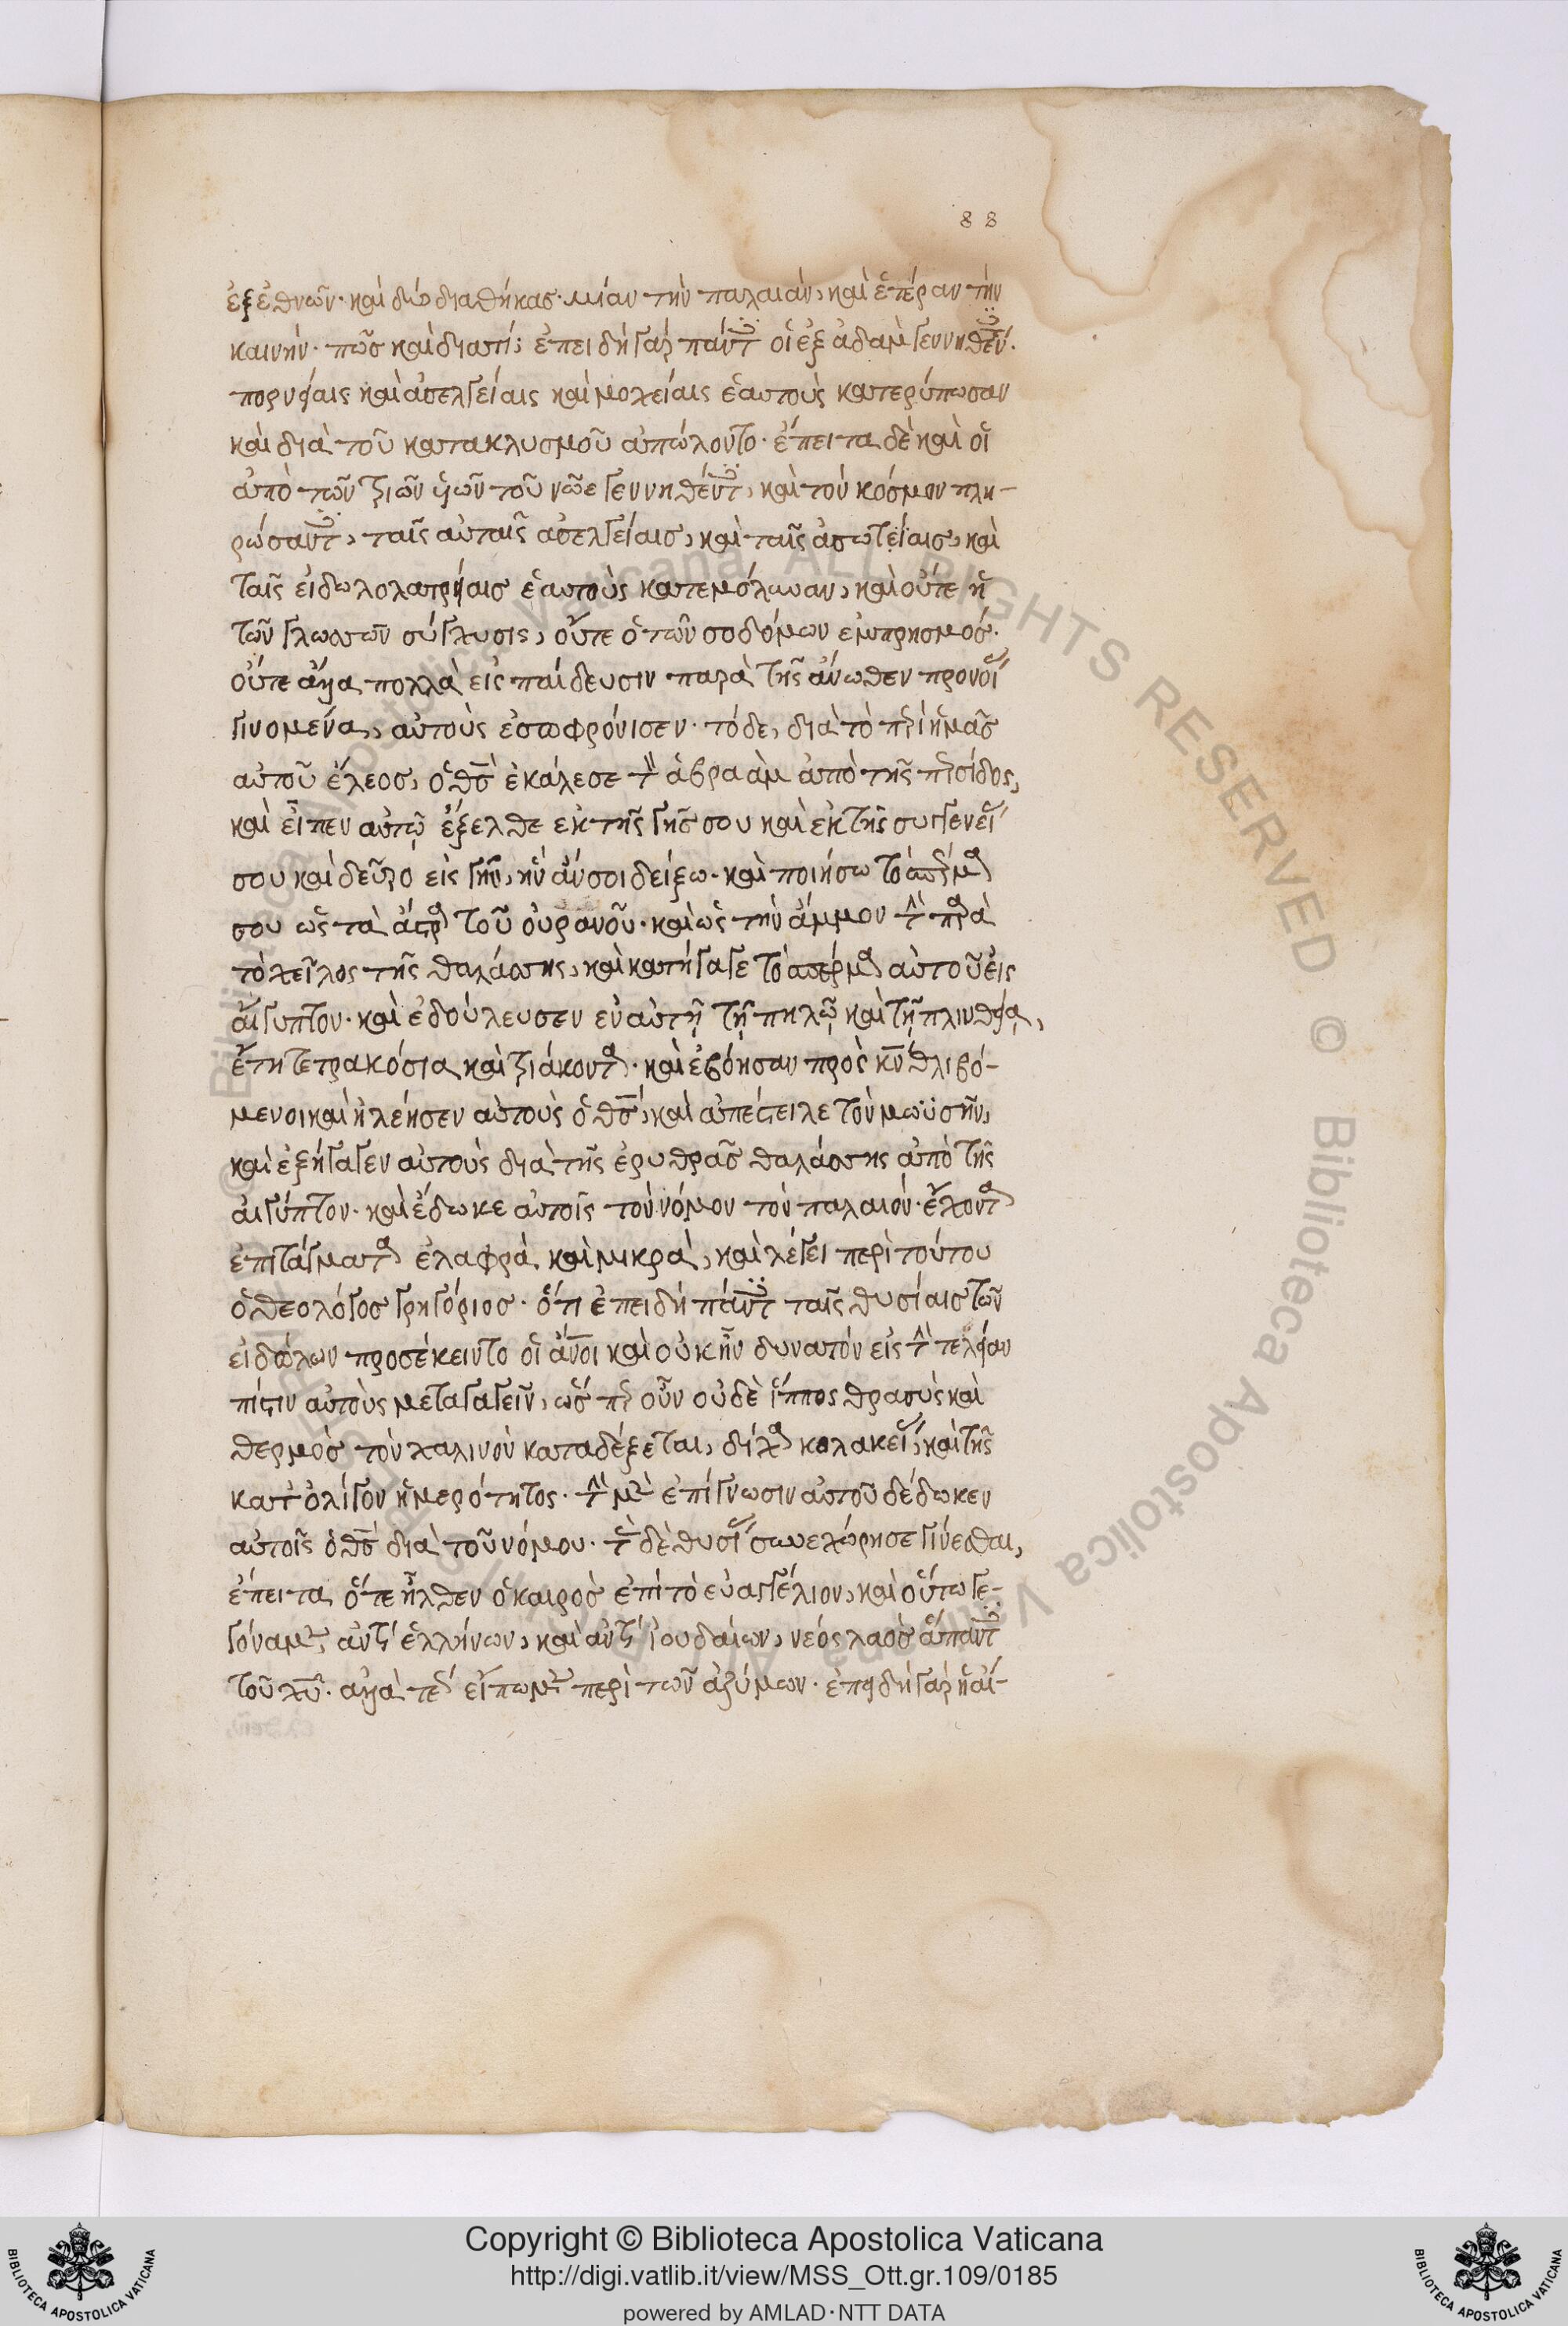 88
ἐξ ἐθνῶν· καὶ δύο διαθήκας· μίαν τὴν παλαιὰν, καὶ ἑτέραν τὴν
καινήν· πῶς καὶ διατί; ἐπειδὴ γὰρ πάντ οἱ ἐξ ἀδαμ γεννηθέν.
πορνείαις καὶ ἀσελγείαις καὶ μοιχείαις ἑαυτοὺς κατερύπωσαν
καὶ διὰ τοῦ κατακλυσμοῦ ἀπώλοντο· ἔπειτα δὲ καὶ οἱ
ἀπὸ τῶν τριῶν ὑιῶν τοῦ νῶε γεννηθέντ, καὶ τὸν κόσμον πλη-
ρώσαντ, ταῖς αὐταῖς ἀσελγείαις, καὶ ταῖς ἀσωτείαις, καὶ
ταῖς εἰδωλολατρείαις ἑαυτοὺς κατεμόλυναν, καὶ οὔτε ἡ
τῶν γλωσσῶν σύγχυσις, οὔτε ὁ τῶν σοδόμων ἐμπρησμός·
οὔτε ἄλλα πολλὰ εἰς παίδευσιν παρὰ τῆς ἄνωθεν προνοί
γινομένα, αὐτοὺς ἐσωφρόνισεν· τόδε, διὰ τὸ πρὶ ἡμᾶς
αὐτοῦ ἔλεος, ὁ θς ἐκάλεσε τ ἀβραὰμ ἀπὸ τῆς πρσίδος,
καὶ εἶπεν αὐτῷ ἔξελθε ἐκ τῆς γῆς σου καὶ ἐκ τῆς συγγενεί
σου καὶ δεῦρο εἰς γῆν, ἣν ἄν σοι δείξω· καὶ ποιήσω τὸ σπέρμα
σου ὡς τὰ ἄστρα τοῦ οὐρανοῦ· καὶ ὡς τὴν ἄμμον τ πρὰ
τὸ χεῖλος τῆς θαλάσσης, καὶ κατήγαγε τὸ σπέρμα αὐτοῦ εἰς
αἴγυπτον· καὶ ἐδούλευσεν ἐν αὐτῇ τῇ πηλῷ καὶ τῇ πλινθείᾳ,
ἔτη τετρακόσια καὶ τριάκοντα· καὶ ἐβόησαν πρὸς κν θλιβό-
μενοι καὶ ἠλέησεν αὐτοὺς ὁ θς, καὶ ἀπέστειλε τὸν μωϋσῆν,
καὶ ἐξήγαγεν αὐτοὺς διὰ τῆς ἐρυθρᾶς θαλάσσης ἀπὸ τῆς
αἰγύπτου· καὶ ἔδωκε αὐτοῖς τὸν νόμον τὸν παλαιόν· ἔχοντα
ἐπιτάγματα ἐλαφρὰ καὶ μικρὰ, καὶ λέγει περὶ τούτου
ὁ θεολόγος γρηγόριος· ὅτι ἐπειδὴ πάντ ταῖς θυσίαις τῶν
εἰδώλων προσέκειντο οἱ ἄνοι καὶ οὐκ ἦν δυνατὸν εἰς τ τελείαν
πίστιν αὐτοὺς μεταγαγεῖν, ὥσπερ οὖν οὐδὲ ἵππος θρασὺς καὶ
θερμὸς τὸν χαλινὸν καταδέξεται, δίχα κολακεί, καὶ τῆς
κατ ὀλίγον ἡμερότητος· τ μὲν ἐπίγνωσιν αὐτοῦ δέδωκεν
αὐτοῖς ὁ θς διὰ τοῦ νόμου· τ δὲ θυσί συνεχώρησε γίνεσθαι,
ἔπειτα ὅτε ἦλθεν ὁ καιρὸς ἐπὶ τὸ εὐαγγέλιον, καὶ οὕτω γε-
γόναμεν ἀντὶ ἑλλήνων, καὶ ἀντὶ ἰουδαίων, νέος λαὸς ἅπαντ
τοῦ χυ· ἀλλὰ τέ εἴπωμεν περὶ τῶν ἀζύμων· ἐπειδὴ γὰρ ἡ αἰ-
Copyright © Biblioteca Apostolica Vaticana
http://digi.vatlib.it/view/MSS_Ott.gr.109/0185
powered by AMLAD·NTT DATA
BIBLIOTECA APOSTOLICA VATICANA
BIBLIOTECA APOSTOLICA VATICANA